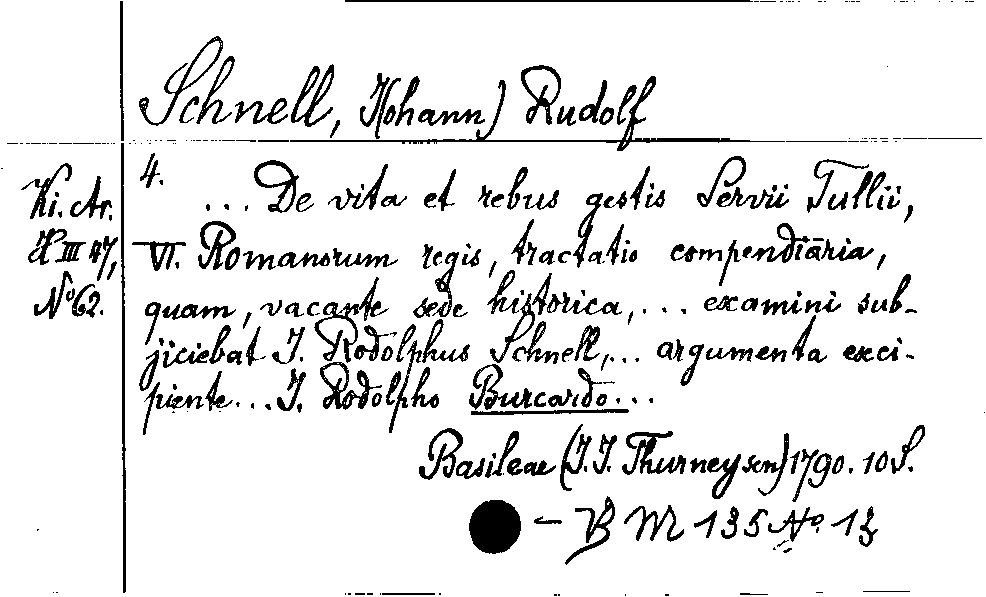 Schnell, J(ohann) Rudolf
4.
Ki. Ar.
H III 47,
No 62.
... De vita et rebus gestis Servii Tullii,
VI. Romanorum regis, tractatio compendiaria,
quam, vacante sede historica, ... examini sub-
jiciebat J. Rodolphus Schnell, ... argumenta exci-
piente ... J. Rodolpho Burcardo ...
Basileae (J. J. Thurneysen) 1790. 10 S.
– B M 135 No. 13